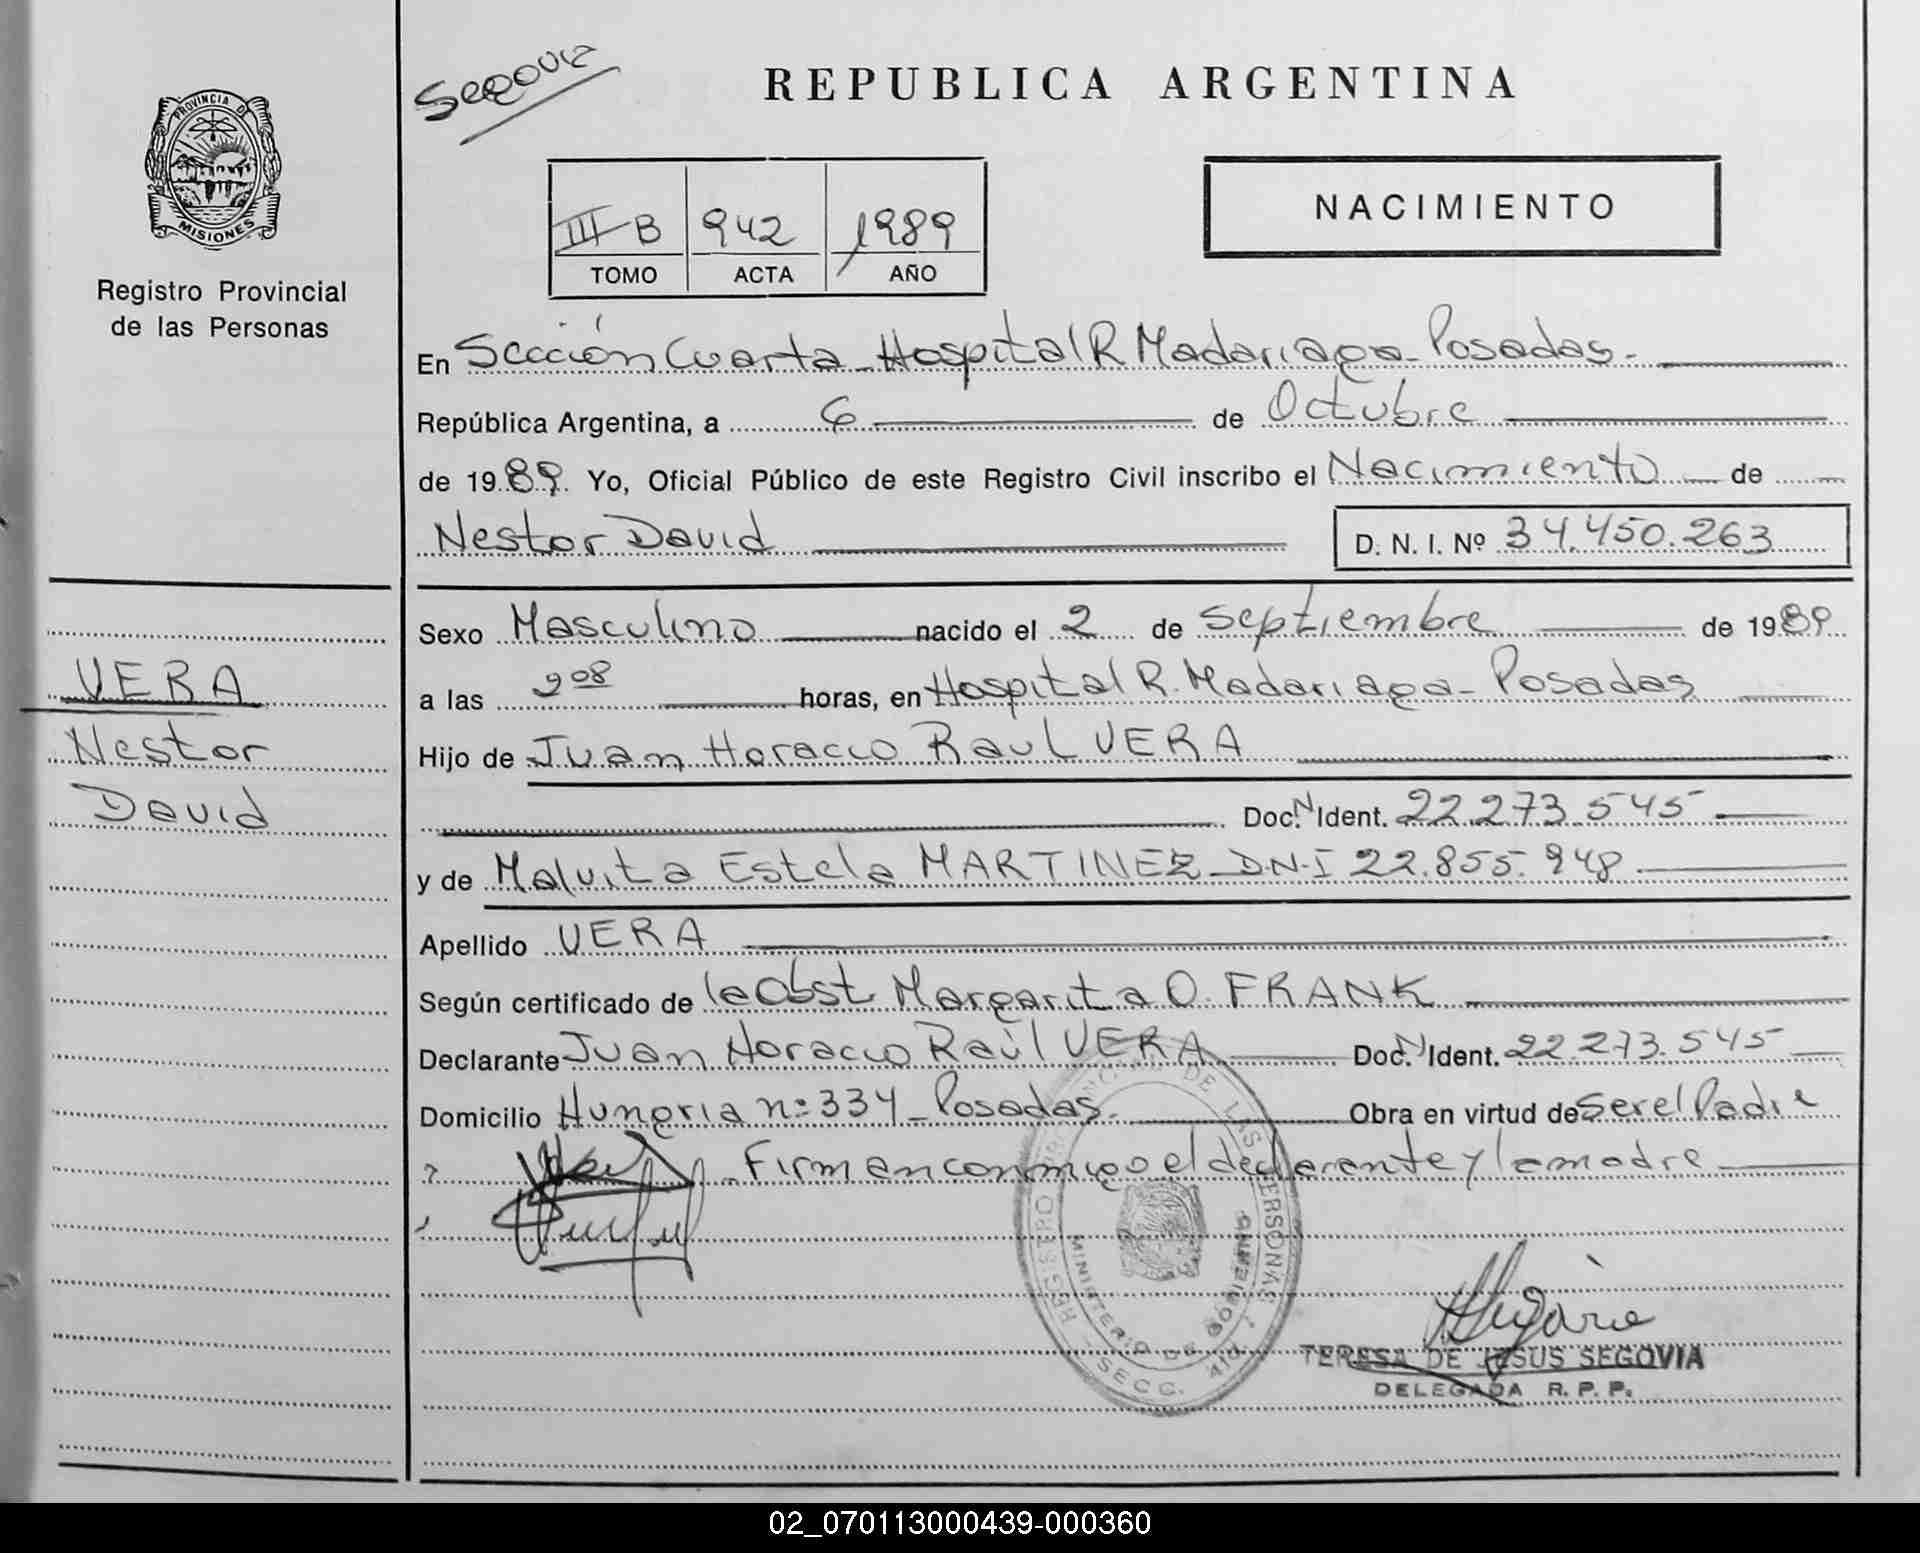 PROVINCIA DE
MISIONES
Registro Provincial
de las Personas
VERA
Nestor
David
Segovia
REPUBLICA ARGENTINA
III B 942 1989
TOMO ACTA AÑO
NACIMIENTO
En Sección Cuarta - Hospital R. Madariaga - Posadas -
República Argentina, a 6 de Octubre
de 1989. Yo, Oficial Público de este Registro Civil inscribo el Nacimiento de
Nestor David D. N. I. Nº 34.450.263
Sexo Masculino nacido el 2 de septiembre de 1989
a las 9 08 horas, en Hospital R. Madariaga - Posadas
Hijo de Juan Horacio Raul VERA
Doc. N Ident. 22.273.545
y de Malvita Estela MARTINEZ - D.N.I 22.855.948
Apellido VERA
Según certificado de la Obst. Margarita O. FRANK
Declarante Juan Horacio Raúl VERA Doc. N Ident. 22.273.545
Domicilio Hungria nº 334 - Posadas. Obra en virtud de ser el Padre
- Firman conmigo el declarante y la madre
REGISTRO PROVINCIAL DE LAS PERSONAS
MINISTERIO DE GOBIERNO
SECC. 4ta.
TERESA DE JESUS SEGOVIA
DELEGADA R. P. P.
02_070113000439-000360